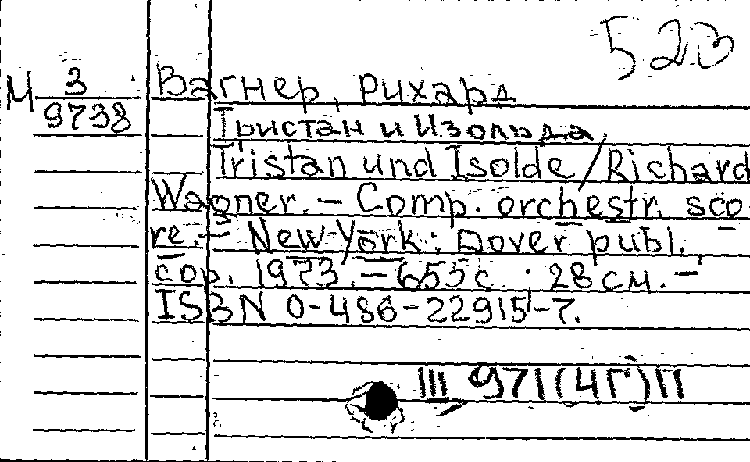 523
М 3
9798
Вагнер, Рихард
Тристан и Изольда
Tristan und Isolde / Richard
Wagner. – Comp. orchestr. sco-
re. – New-York : Dover publ.,
cop. 1973. – 655 с. ; 28 см. –
ISBN 0-486-22915-7.
III 971(4Г)П